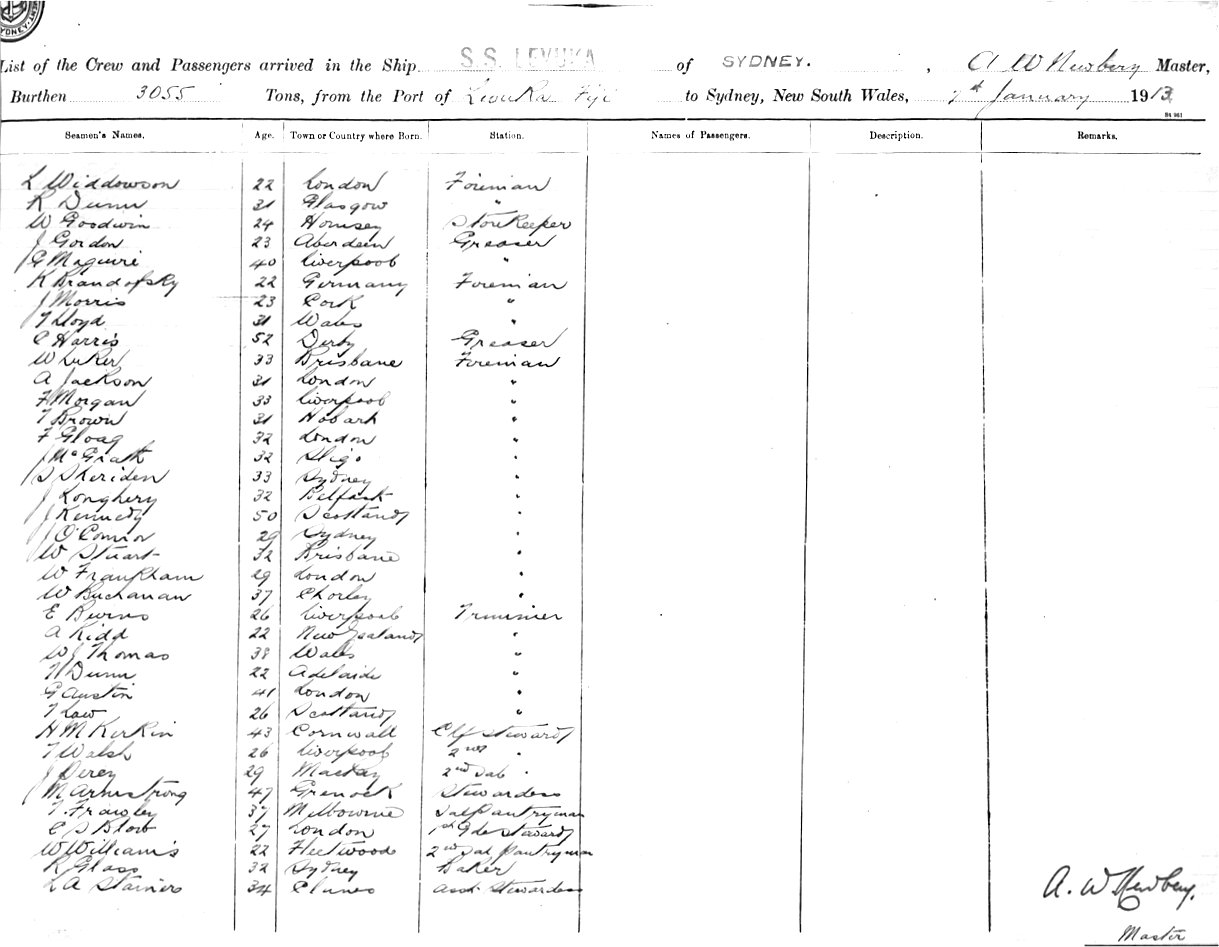 SYDNEY
List of the Crew and Passengers arrived in the Ship S.S. LEVUKA of SYDNEY. , A W Newbery Master,
Burthen 3055 Tons, from the Port of Levuka Fiji to Sydney, New South Wales, 7th January 1913
Seamen's Names. Age. Town or Country where Born. Station. Names of Passengers. Description. Remarks.
L Widdowson 22 London Fireman
R Dunn 31 Glasgow "
W Goodwin 24 Hornsey Storekeeper
J Gordon 23 Aberdeen Greaser
G Maguire 40 Liverpool "
K Brandofsky 22 Germany Fireman
J Morris 23 Cork "
T Lloyd 31 Wales "
C Harris 52 Derby Greaser
W Luker 33 Brisbane Fireman
A Jackson 31 London "
F Morgan 33 Liverpool "
T Brown 31 Hobart "
F Gloag 32 London "
J McGrath 32 Sligo "
S Sheriden 33 Sydney "
J Longhery 32 Belfast "
J Kennedy 50 Scotland "
J O'Connor 29 Sydney "
W Stuart 32 Brisbane "
W Frankham 29 London "
W Buchanan 37 Chorley "
E Burns 26 Liverpool Trimmer
A Kidd 22 New Zealand "
W J Thomas 38 Wales "
T Dunn 22 Adelaide "
G Austin 41 London "
T Law 26 Scotland "
H M Kirkin 43 Cornwall Clf Steward
T Walsh 26 Liverpool 2nd "
J Derey 29 Mackay 2nd Sal "
M Armstrong 47 Grenock Stewardess
T. Frawley 37 Melbourne Sal Pantryman
C S Blow 27 London 1st Gde Steward
W William's 22 Fleetwood 2nd Sal Pantryman
R Glass 32 Sydney Baker
L A Stainers 34 Clunes Asst Stewardess
A. W Newbery.
Master